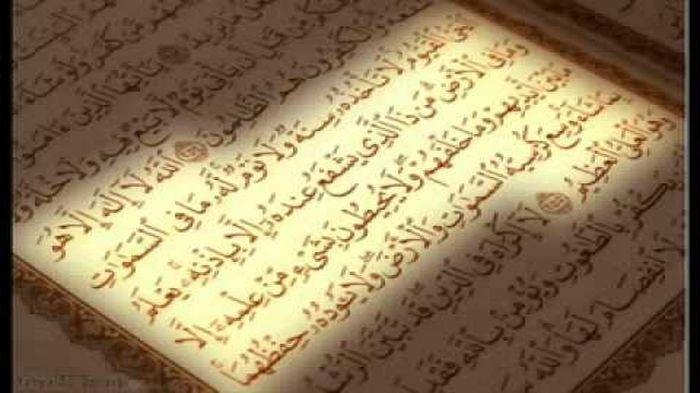 يَٰٓأَيُّهَا ٱلَّذِينَ ءَامَنُوٓا۟
يَوْمٌ لَّا بَيْعٌ فِيهِ وَلَا خُلَّةٌ
وَٱلْكَٰفِرُونَ هُمُ ٱلظَّٰلِمُونَ ٢٥٤ ٱللَّهُ لَآ إِلَٰهَ إِلَّا هُوَ
ٱلْحَىُّ ٱلْقَيُّومُ ۚ لَا تَأْخُذُهُۥ سِنَةٌ وَلَا نَوْمٌ ۚ لَّهُۥ مَا فِى ٱلسَّمَٰوَٰتِ
وَمَا فِى ٱلْأَرْضِ ۗ مَن ذَا ٱلَّذِى يَشْفَعُ عِندَهُۥٓ إِلَّا بِإِذْنِهِۦ ۚ يَعْلَمُ
مَا بَيْنَ أَيْدِيهِمْ وَمَا خَلْفَهُمْ ۖ وَلَا يُحِيطُونَ بِشَىْءٍ مِّنْ عِلْمِهِۦٓ إِلَّا
بِمَا شَآءَ ۚ وَسِعَ كُرْسِيُّهُ ٱلسَّمَٰوَٰتِ وَٱلْأَرْضَ ۖ وَلَا يَـُٔودُهُۥ حِفْظُهُمَا ۚ
وَهُوَ ٱلْعَلِىُّ ٱلْعَظِيمُ ٢٥٥ لَآ إِكْرَاهَ فِى ٱلدِّينِ ۖ قَد تَّبَيَّنَ ٱلرُّشْدُ
يَكْفُرْ بِٱلطَّٰغُوتِ وَيُؤْمِنۢ بِٱللَّهِ فَقَدِ
لَا ٱنفِصَامَ لَهَا ۗ وَٱللَّهُ